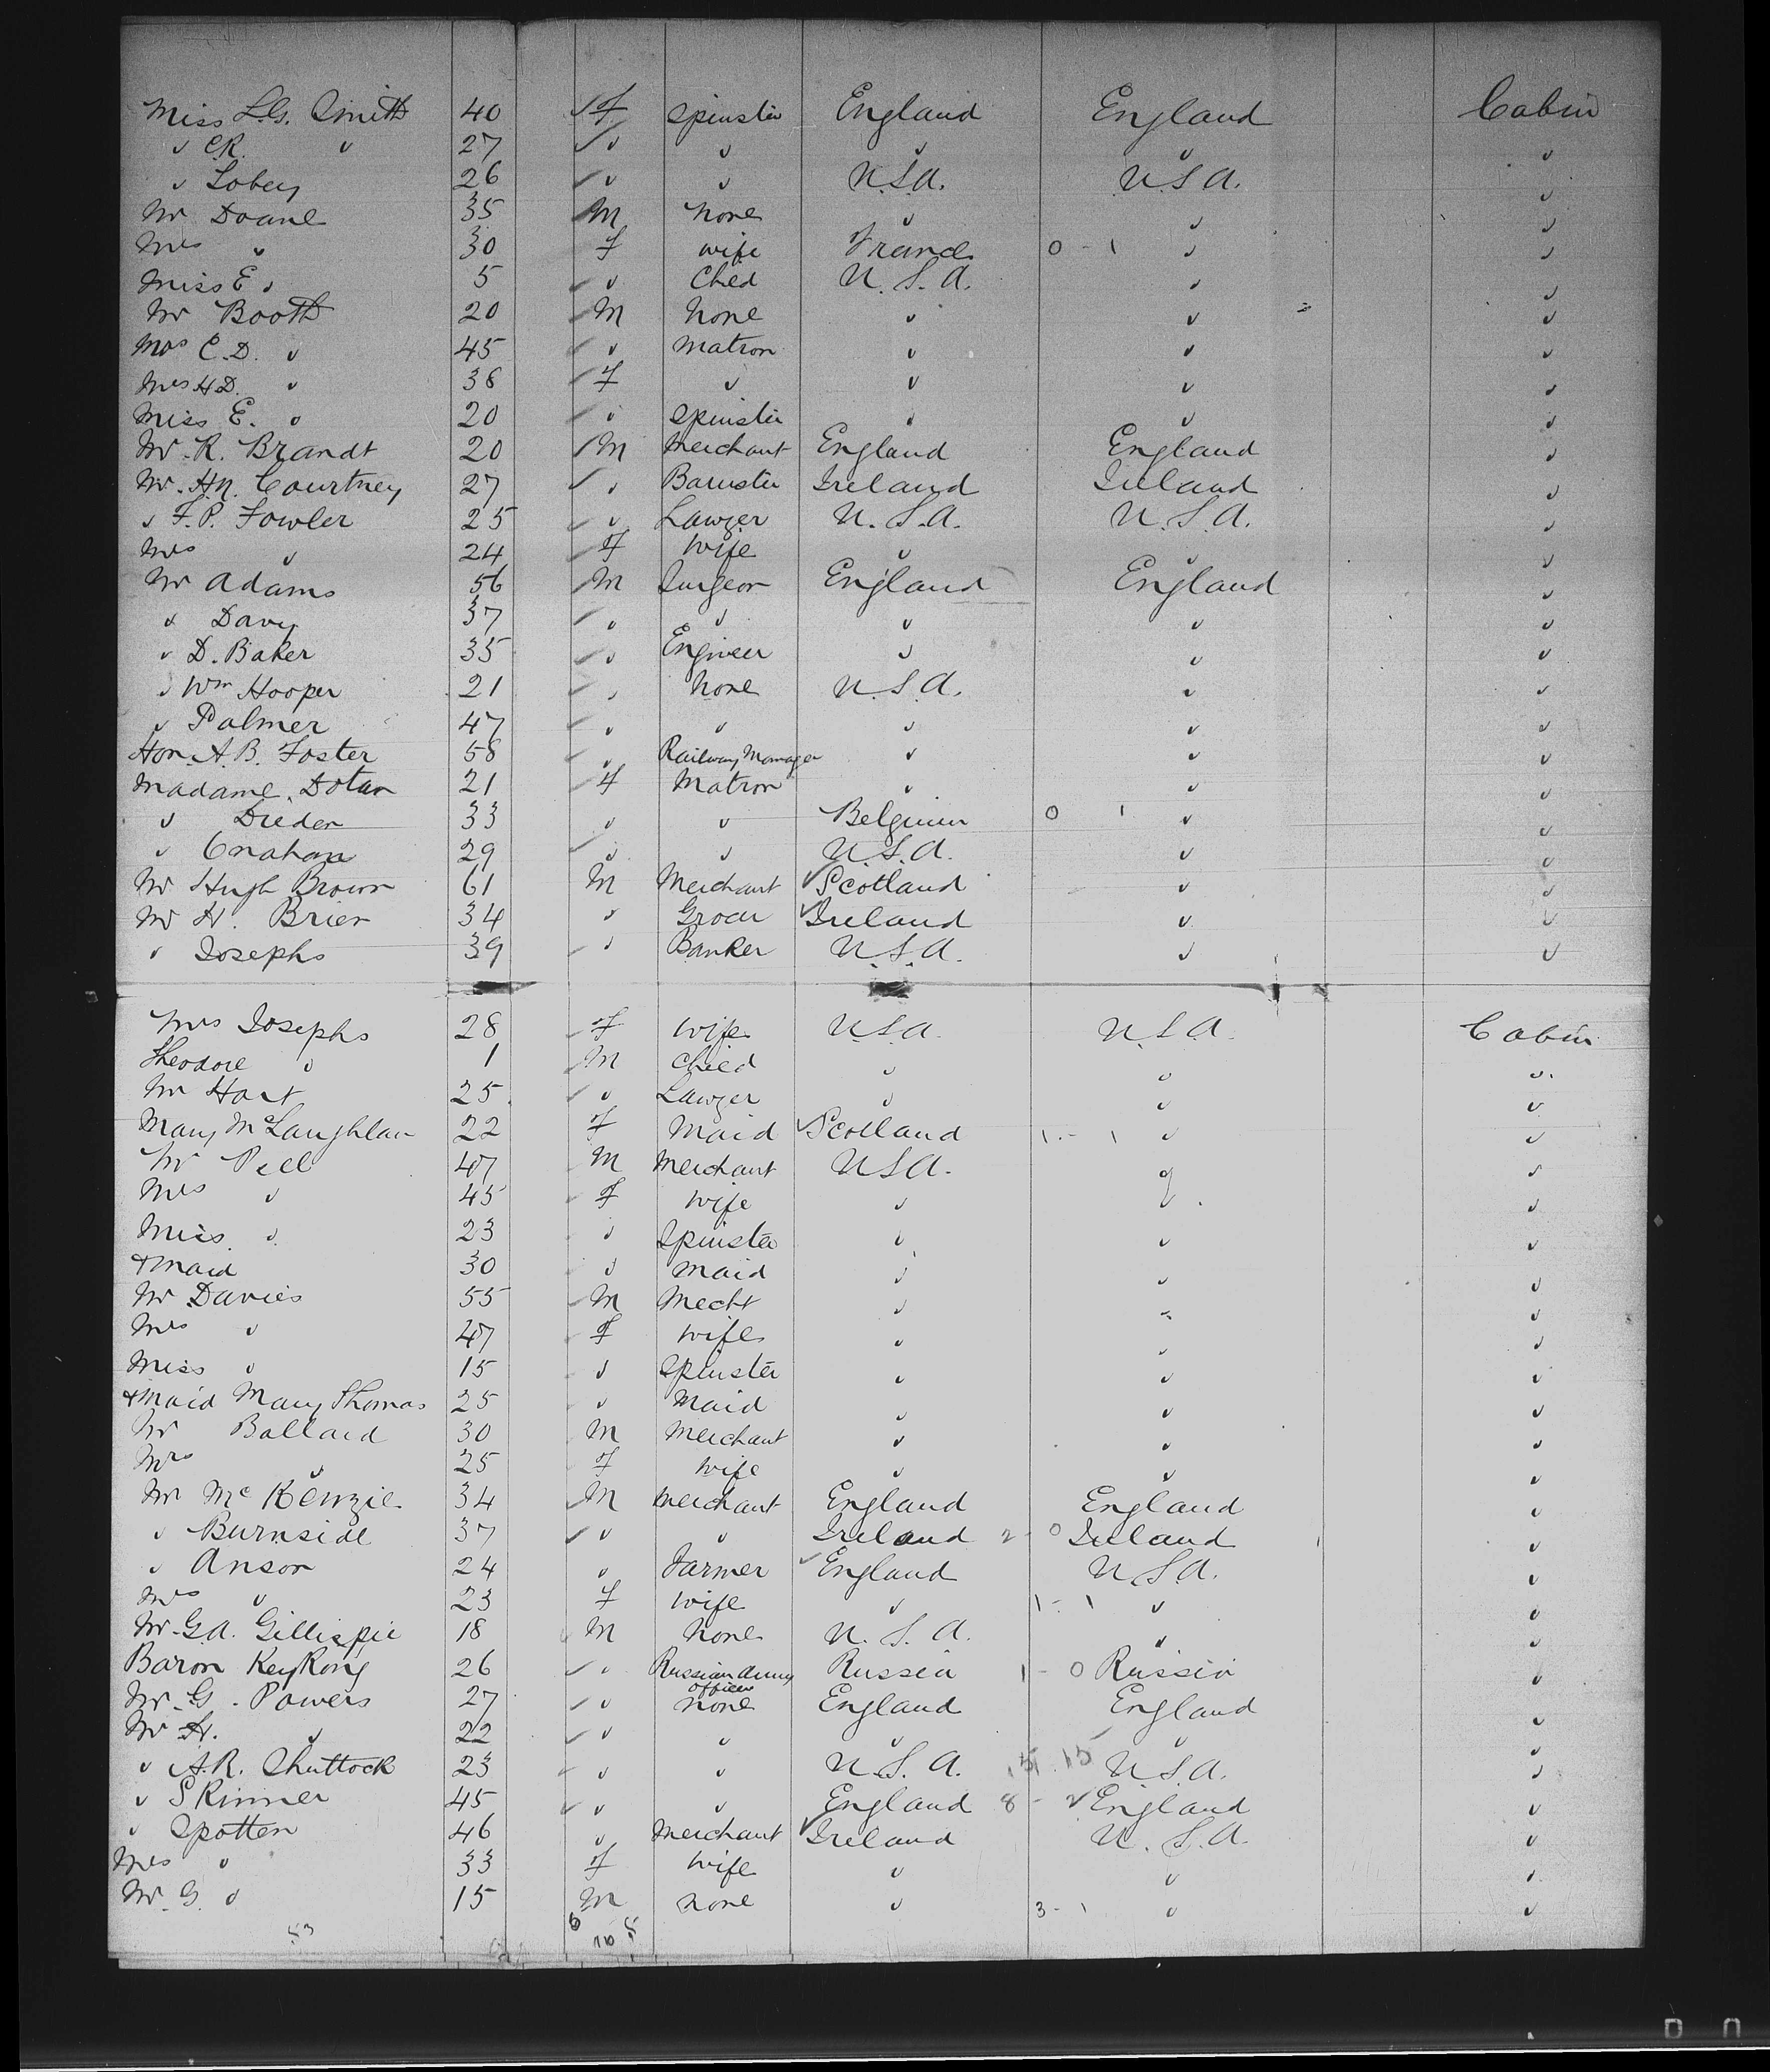 Miss L.G. Smith 40 F Spinster England England Cabin
" C.R. " 27 " " " " "
" Lobey 26 " " U.S.A. U.S.A. "
Mr Doane 35 M none " " "
Mrs " 30 F wife France 0 - 1 " "
Miss E " 5 " Child U.S.A. " "
Mr Booth 20 M None " " "
Mrs C.D. " 45 " Matron " " "
Mrs H.D. " 38 F " " " "
Miss E. " 20 " Spinster " " "
Mr. R. Brandt 20 M Merchant England England "
Mr. H.N. Courtney 27 " Barrister Ireland Ireland "
" F.P. Fowler 25 " Lawyer U.S.A. U.S.A. "
Mrs " 24 F Wife " " "
Mr Adams 56 M Surgeon England England "
" Davy 37 " " " " "
" D. Baker 35 " Engineer " " "
" Wm Hooper 21 " None U.S.A. " "
" Palmer 47 " " " " "
Hon. A.B. Foster 58 " Railway Manager " " "
Madame Dolan 21 F Matron " " "
" Dieden 33 " " Belgium 0 1 " "
" 29 " " U.S.A. " "
Mr Hugh Brown 61 M Merchant Scotland " "
Mr H. Brier 34 " Grocer Ireland " "
" Josephs 39 " Banker U.S.A. " "
Mrs Josephs 28 F Wife U.S.A. U.S.A. Cabin
Theodore " 1 M Child " " "
Mr Hart 25 " Lawyer " " "
Mary McLaughlan 22 F Maid Scotland 1 - 1 " "
Mr Pell 47 M Merchant USA. " "
Mrs " 45 F Wife " " "
Miss " 23 " Spinster " " "
+ Maid 30 " Maid " " "
Mr Davies 55 M Mecht " " "
Mrs " 47 F Wife " " "
Miss " 15 " Spinster " " "
+ Maid Mary Thomas 25 " Maid " " "
Mr Ballard 30 M Merchant " " "
Mrs " 25 F Wife " " "
Mr McKenzie 34 M Merchant England England "
" Burnside 37 " " Ireland 2 - 0 Ireland "
" Anson 24 " Farmer England U.S.A. "
Mrs " 23 F Wife " 1 - 1 " "
Mr. G.A. Gillispie 18 M None U.S.A. " "
Baron KeyKong 26 " Russian Army Officer Russia 1 - 0 Russia "
Mr. G. Powers 27 " none England England "
Mr H. " 22 " " " " "
" A.R. Shuttock 23 " " U.S.A. 15 U.S.A. "
" Skinner 45 " " England 8 - 2 England "
" Spotten 46 " Merchant Ireland U.S.A. "
Mrs " 33 F Wife " " "
Mr. G. " 15 M none " 3 - 1 " "
53